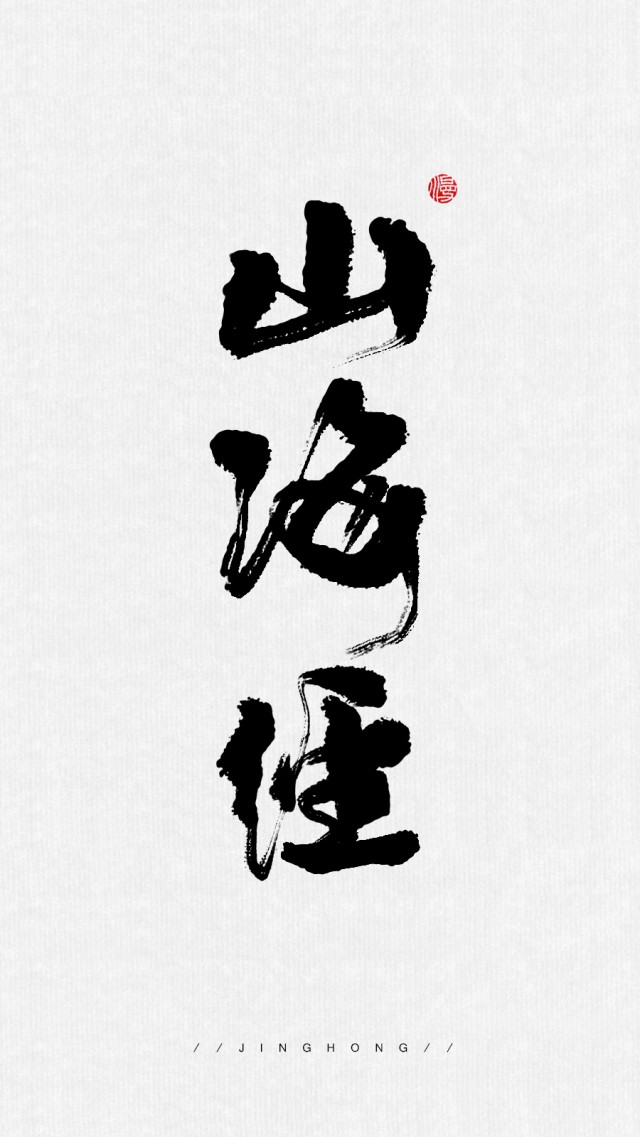 山海經
//JINGHONG//